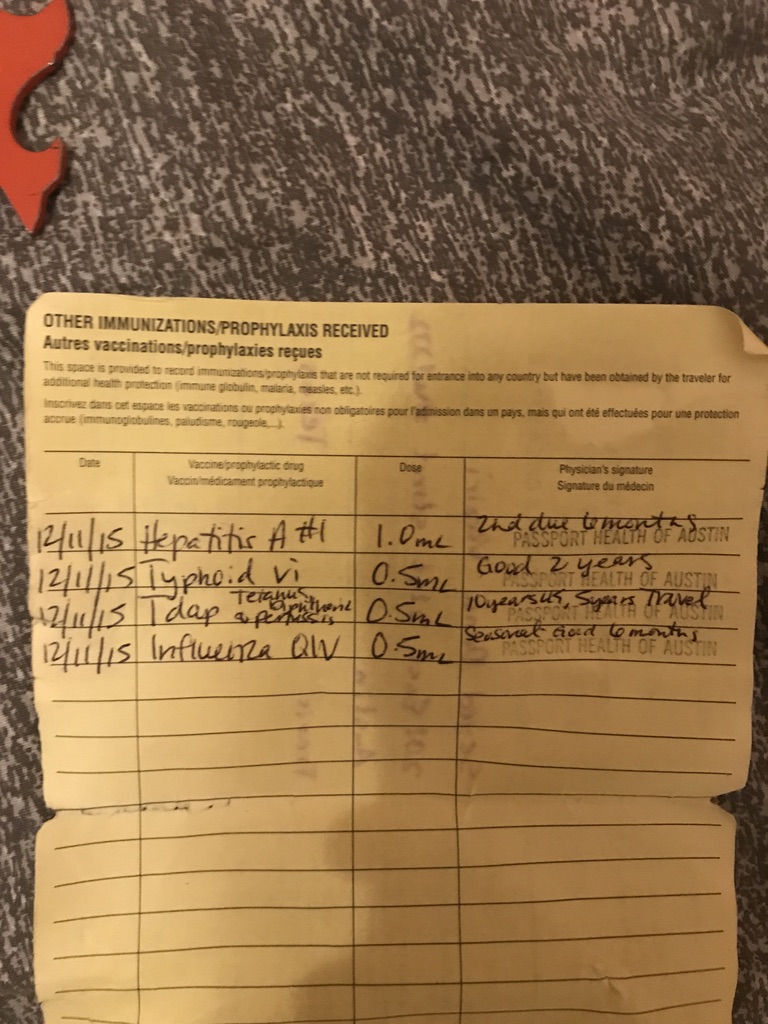 OTHER IMMUNIZATIONS/PROPHYLAXIS RECEIVED
Autres vaccinations/prophylaxies reçues
This space is provided to record immunizations/prophylaxis that are not required for entrance into any country but have been obtained by the traveler for
additional health protection (immune globulin, malaria, measles, etc.).
Inscrivez dans cet espace les vaccinations ou prophylaxies non obligatoires pour l'admission dans un pays, mais qui ont été effectuées pour une protection
accrue (immunoglobulines, paludisme, rougeole,...).
Date Vaccine/prophylactic drug Dose Physician's signature
Vaccin/médicament prophylactique Signature du médecin
12/11/15 Hepatitis A #1 1.0mL 2nd due 6 months
PASSPORT HEALTH OF AUSTIN
12/11/15 Typhoid Vi 0.5mL Good 2 years
PASSPORT HEALTH OF AUSTIN
12/11/15 Tdap Tetanus Diphtheria & pertussis 0.5mL 10 years US, 5 years Travel
PASSPORT HEALTH OF AUSTIN
12/11/15 Influenza QIV 0.5mL Seasonal Good 6 months
PASSPORT HEALTH OF AUSTIN